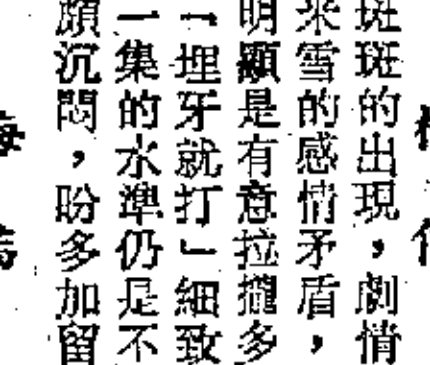 斑斑的出現，劇情
米雪的感情矛盾，
明顯是有意拉攏多
「埋牙就打」細致
一集的水準仍是不
頗沉悶，盼多加留